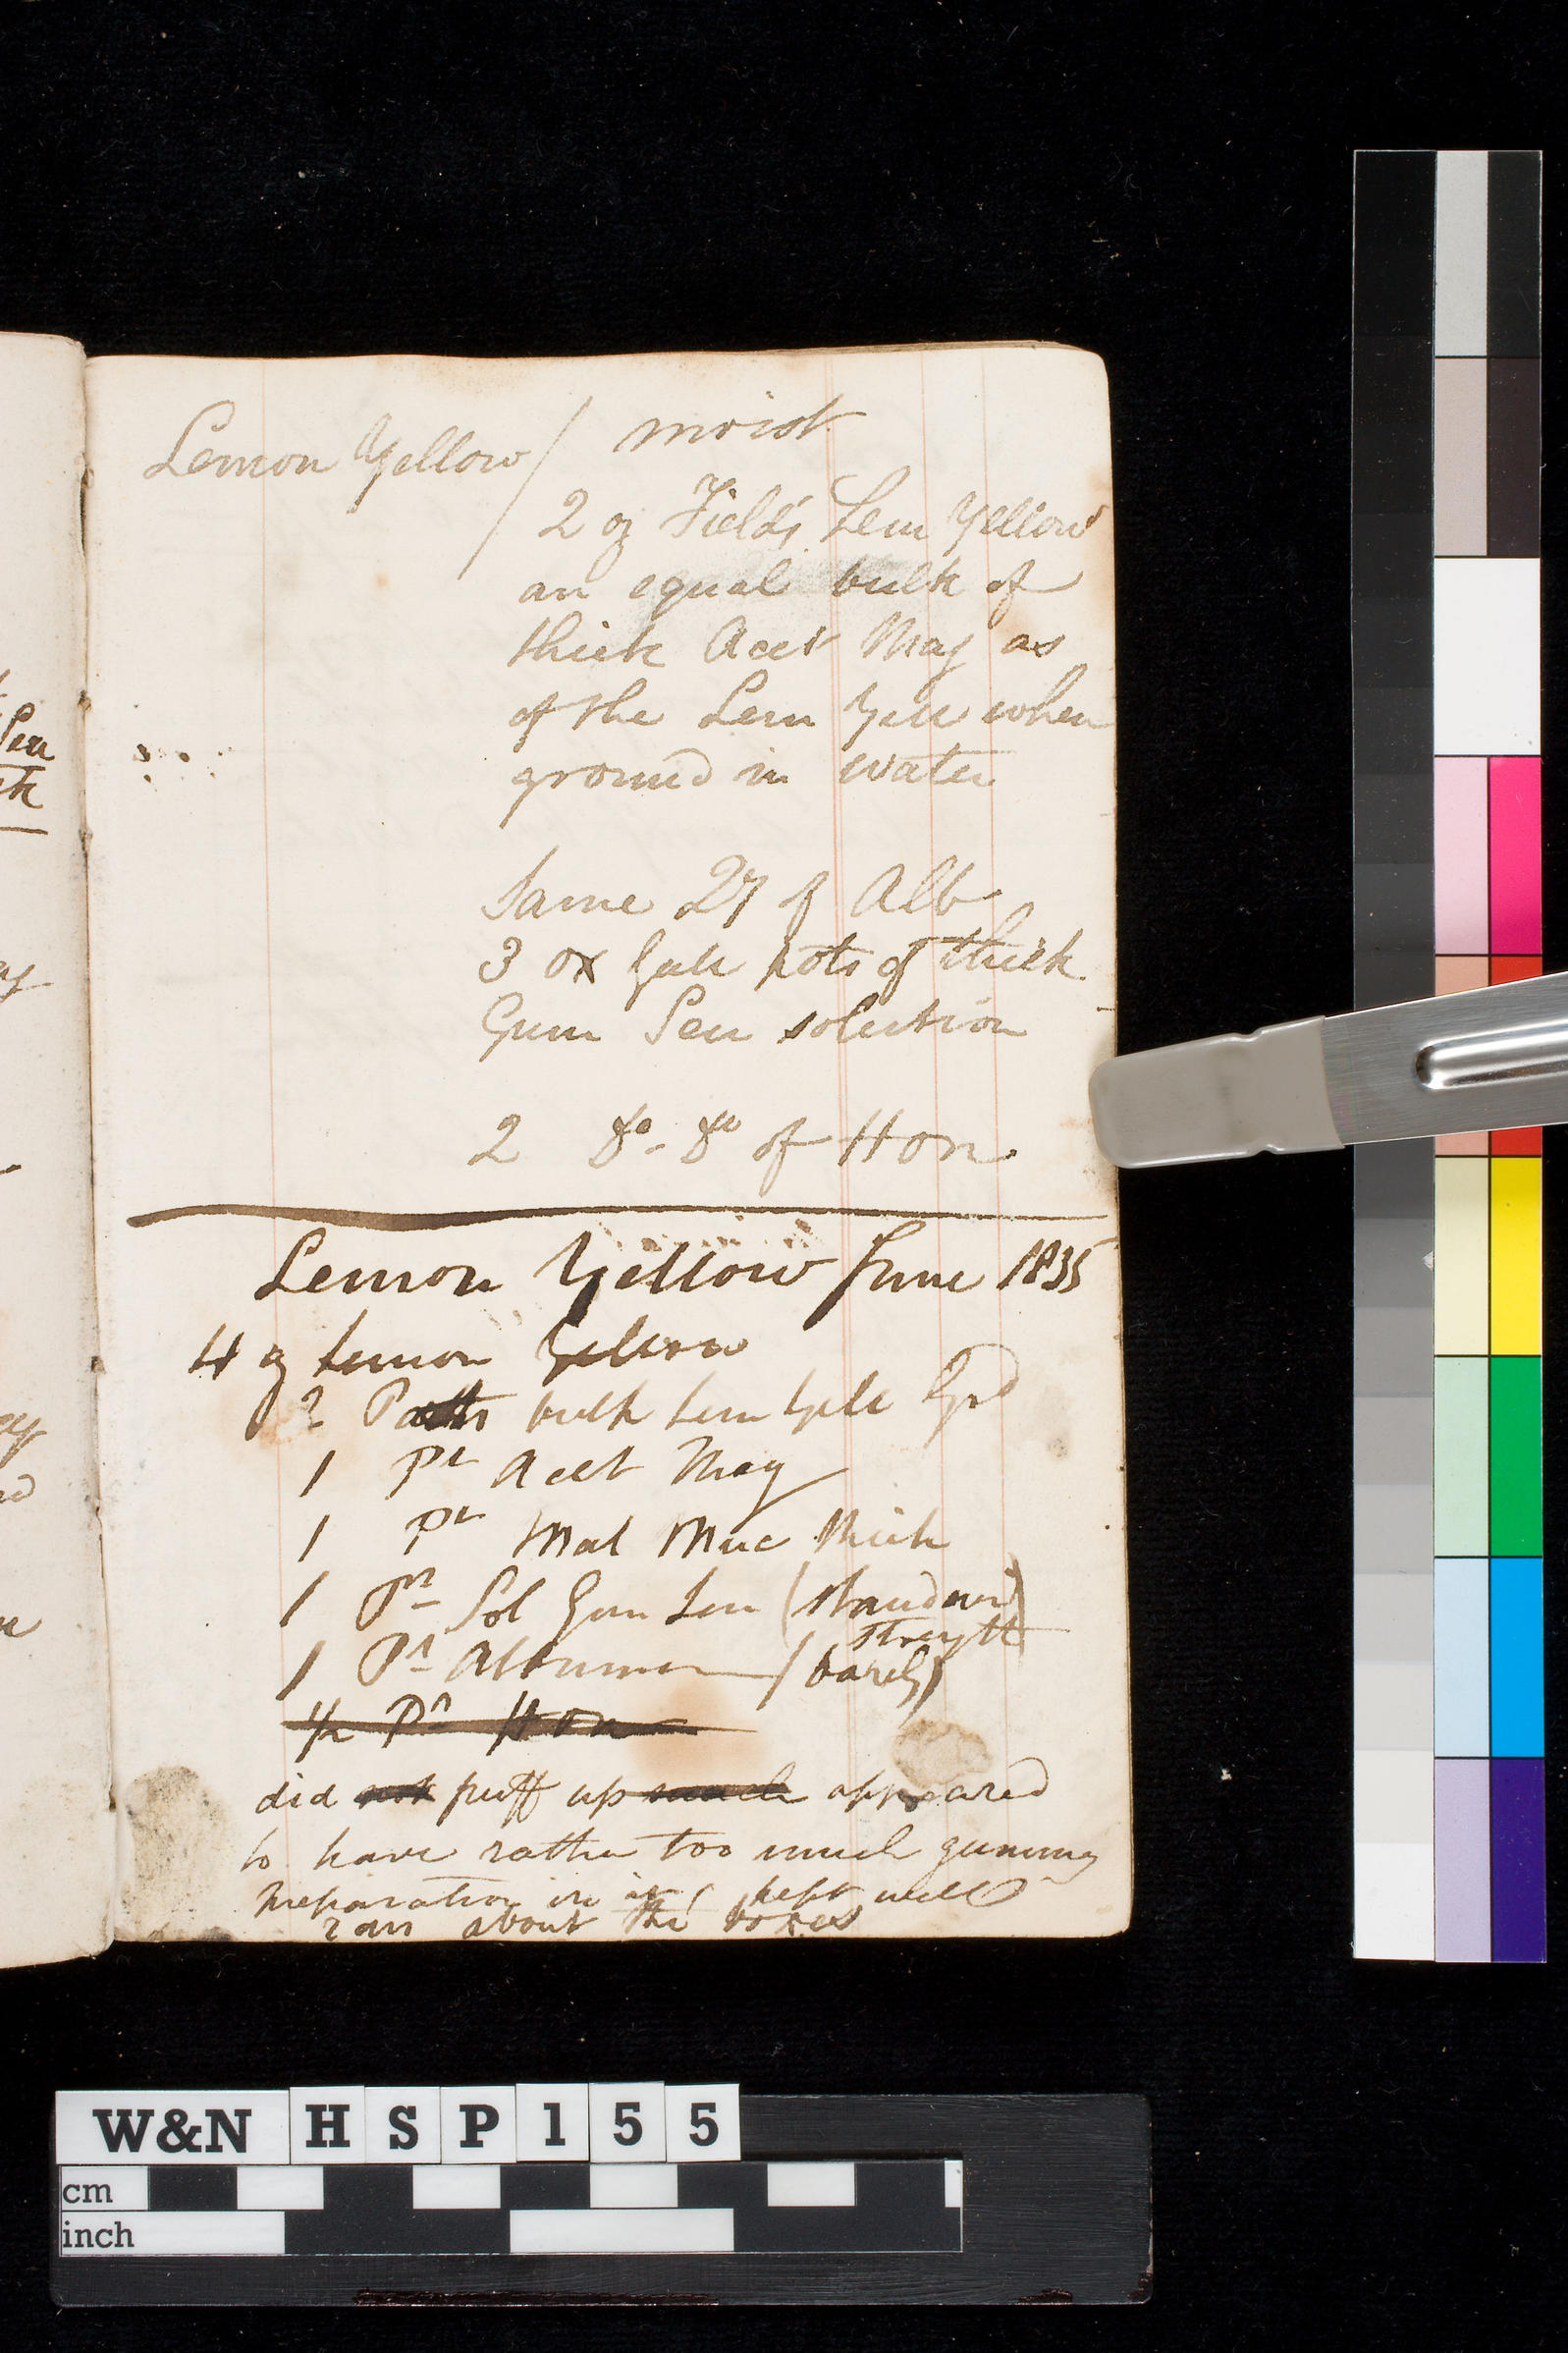 Lemon Yellow / moist
2 oz Field's Lem Yellow
an equal bulk of
thick Acet Mag as
of the Lem Yell when
ground in water
Same Qy of Alb
3 ox Gall pots of thick
Gum Sen solution
2 do. do of Hon.
Lemon Yellow June 1835
4 oz Lemon Yellow
2 Parts bulk Lem Yell Grd
1 Pt Acet Mag
1 Pt Mal Muc thick
1 Pt Sol Gum Sen (standard
strength)
1 Pt Albumen (barely)
1/2 Pt Hon
did not puff up much appeared
to have rather too much gummy
preparation in it kept well
ran about the boxes
Sen
W&N HSP155
cm
inch